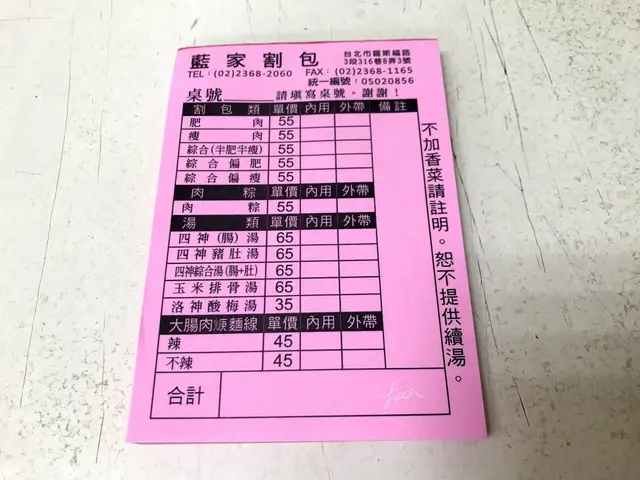 藍家割包
台北市羅斯福路
3段316巷8弄3號
TEL：(02)2368-2060 FAX：(02)2368-1165
統一編號：05020856
桌號 請填寫桌號。謝謝！
割包類 單價 內用 外帶 備註
肥肉 55
瘦肉 55
綜合(半肥半瘦) 55
綜合偏肥 55
綜合偏瘦 55
肉粽 單價 內用 外帶
肉粽 55
湯類 單價 內用 外帶
四神(腸)湯 65
四神豬肚湯 65
四神綜合湯(腸+肚) 65
玉米排骨湯 65
洛神酸梅湯 35
大腸肉焿麵線 單價 內用 外帶
辣 45
不辣 45
合計
不加香菜請註明。恕不提供續湯。